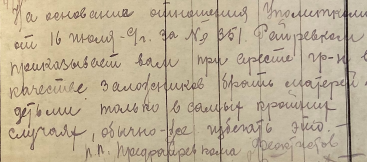 На основании отношения Уполиткома
от 16 июля с/г. за № 351. Райревком
приказывает вам при аресте гр-н в
качестве заложников брать матерей с
детьми только в самых крайних
случаях, обычно-же избегать это.
п.п. Предрайревкома